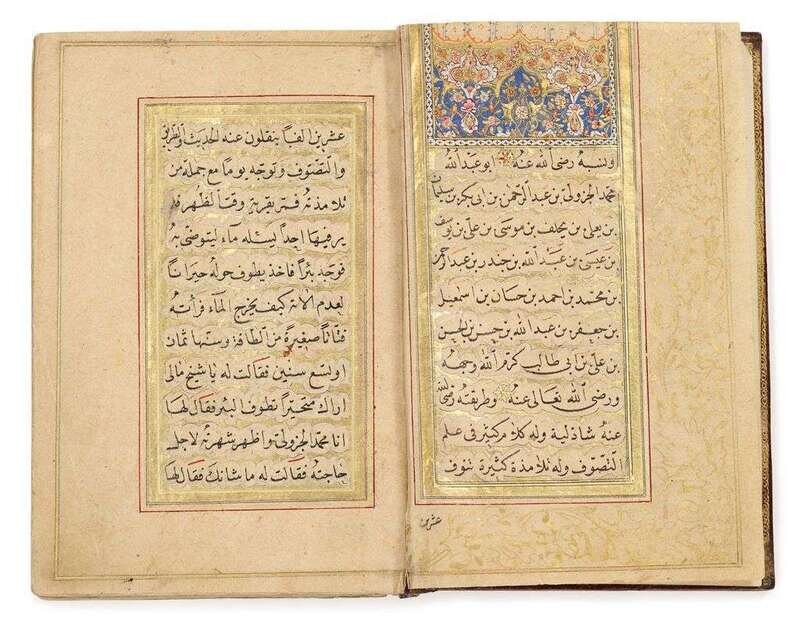 ونسبه رضى الله عنه ابو عبد الله
محمد الجزولى بن عبد الرحمن بن ابى بكر بن سليمان
بن يعلى بن يخلف بن موسى بن على بن يوسف
بن عيسى بن عبد الله بن جندر بن عبد الرحمن
بن محمد بن احمد بن حسان بن اسمعيل
بن جعفر بن عبد الله بن حسن بن الحسن
بن على بن ابى طالب كرم الله وجهه
ورضى الله تعالى عنه وطريقته رضى الله
عنه شاذلية وله كلام كثير فى علم
التصوف وله تلامذة كثيرة نوف
عشرين
عشرين الفا ينقلون عنه الحديث والطريق
والتصوف وتوجه يوما مع جملة من
تلامذته فمر بقرية وقتا لظهر فلم
ير فيها احدا ليسئله ماء ليتوضئ به
فوجد بئرا فاخذ يطوف حوله حيرانا
لعدم الالة كيف يخرج الماء فرأته
فتاتا صغيرة من الطاقة وسنها ثمان
او تسع سنين فقالت له يا شيخ مالى
اراك متحيرا تطوف البئر فقال لها
انا محمد الجزولى واظهر شهرته لاجل
حاجته فقالت له ما شانك فقال لها